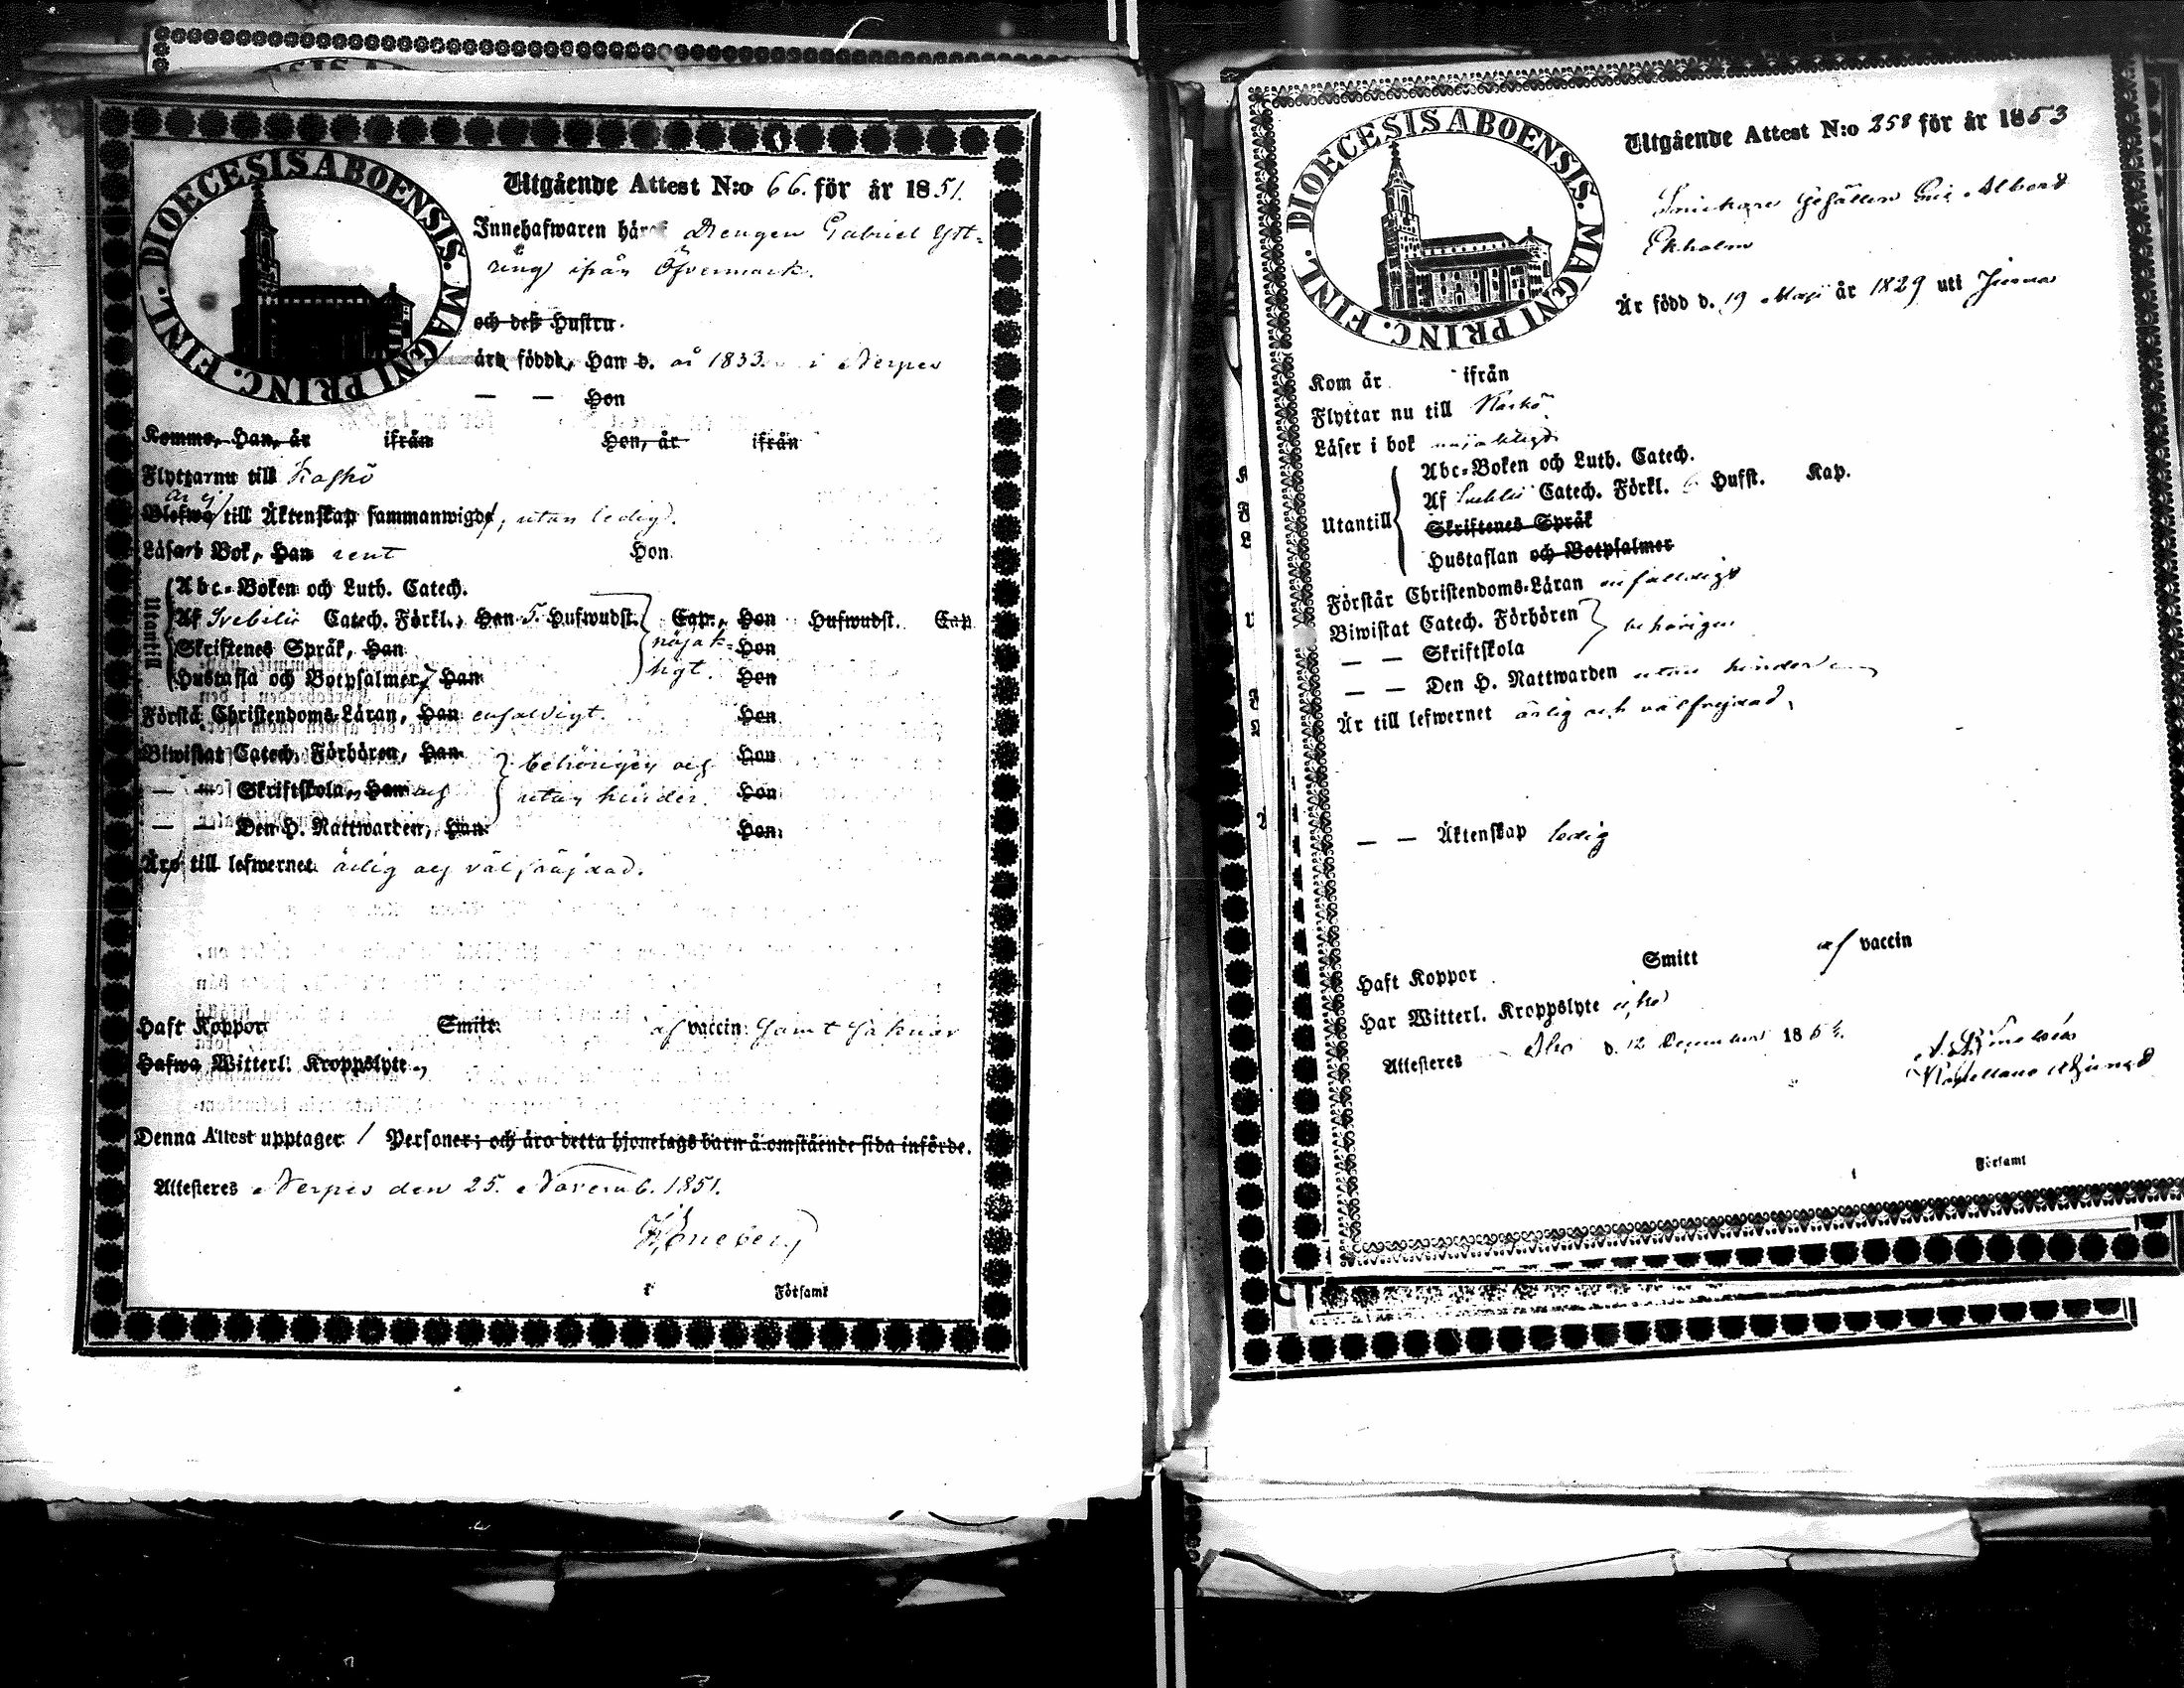 DIOECESIS ABOENSIS. MAGNI PRINC. FINL.
Utgående Attest N:o 66. för år 1851.
Innehafwaren häraf Drengen Gabriel Ytt-
ring ifrån Öfvermark.
och deß Hustru
äro födde, Han d. år 1833. i Nerpes
— — Hon
Kommo, Han, år ifrån Hon, år ifrån
Flyttar nu till Kaskö
är ej
Blefwo till Äktenskap sammanwigde, utan ledig.
Läsa i Bok, Han rent Hon
Utantill
Abc-Boken och Luth. Catech.
Af Svebilii Catech. Förkl., Han 5. Hufwudst. Cap., Hon Hufwudst. Cap
Skriftenes Språk, Han nöjak- Hon
Hustafla och Botpsalmer, Han ligt. Hon
Förstå Christendoms-Läran, Han enfaldigt. Hon
Biwistat Catech. Förhören, Han behörigen och Hon
— — Skriftskola, Han och utan hinder. Hon
— — Den H. Nattwarden, Han Hon
Äro till lefwernet ärlig och välfräjdad.
Haft Koppor Smitt af vaccin samt saknar
Hafwa Witterl. Kroppslyte,
Denna Attest upptager 1 Personer; och äro detta hjonelags barn å omstående sida införde.
Attesteres Nerpes den 25. Novemb. 1851.
Förfamt
DIOECESIS ABOENSIS. MAGNI PRINC. FINL.
Utgående Attest N:o 258 för år 1853
Snickare Gesällen Eric Albert
Ekholm
Är född d. 19 Maji år 1829 uti
Kom år ifrån
Flyttar nu till Kaskö
Läser i bok nöjaktigt
Utantill
Abc-Boken och Luth. Catech.
Af Svebilii Catech. Förkl. 6 Hufst. Kap.
Skriftenes Språk
Hustaflan och Botpsalmer
Förstår Christendoms-Läran enfaldigt
Biwistat Catech. Förhören
behörigen
— — Skriftskola
— — Den H. Nattwarden utan hinder
Är till lefwernet ärlig och välfrejdad,
— — Äktenskap ledig
Haft Koppor Smitt af vaccin
Har Witterl. Kroppslyte icke
Attesteres Åbo d. 12 December 185
Förfamt